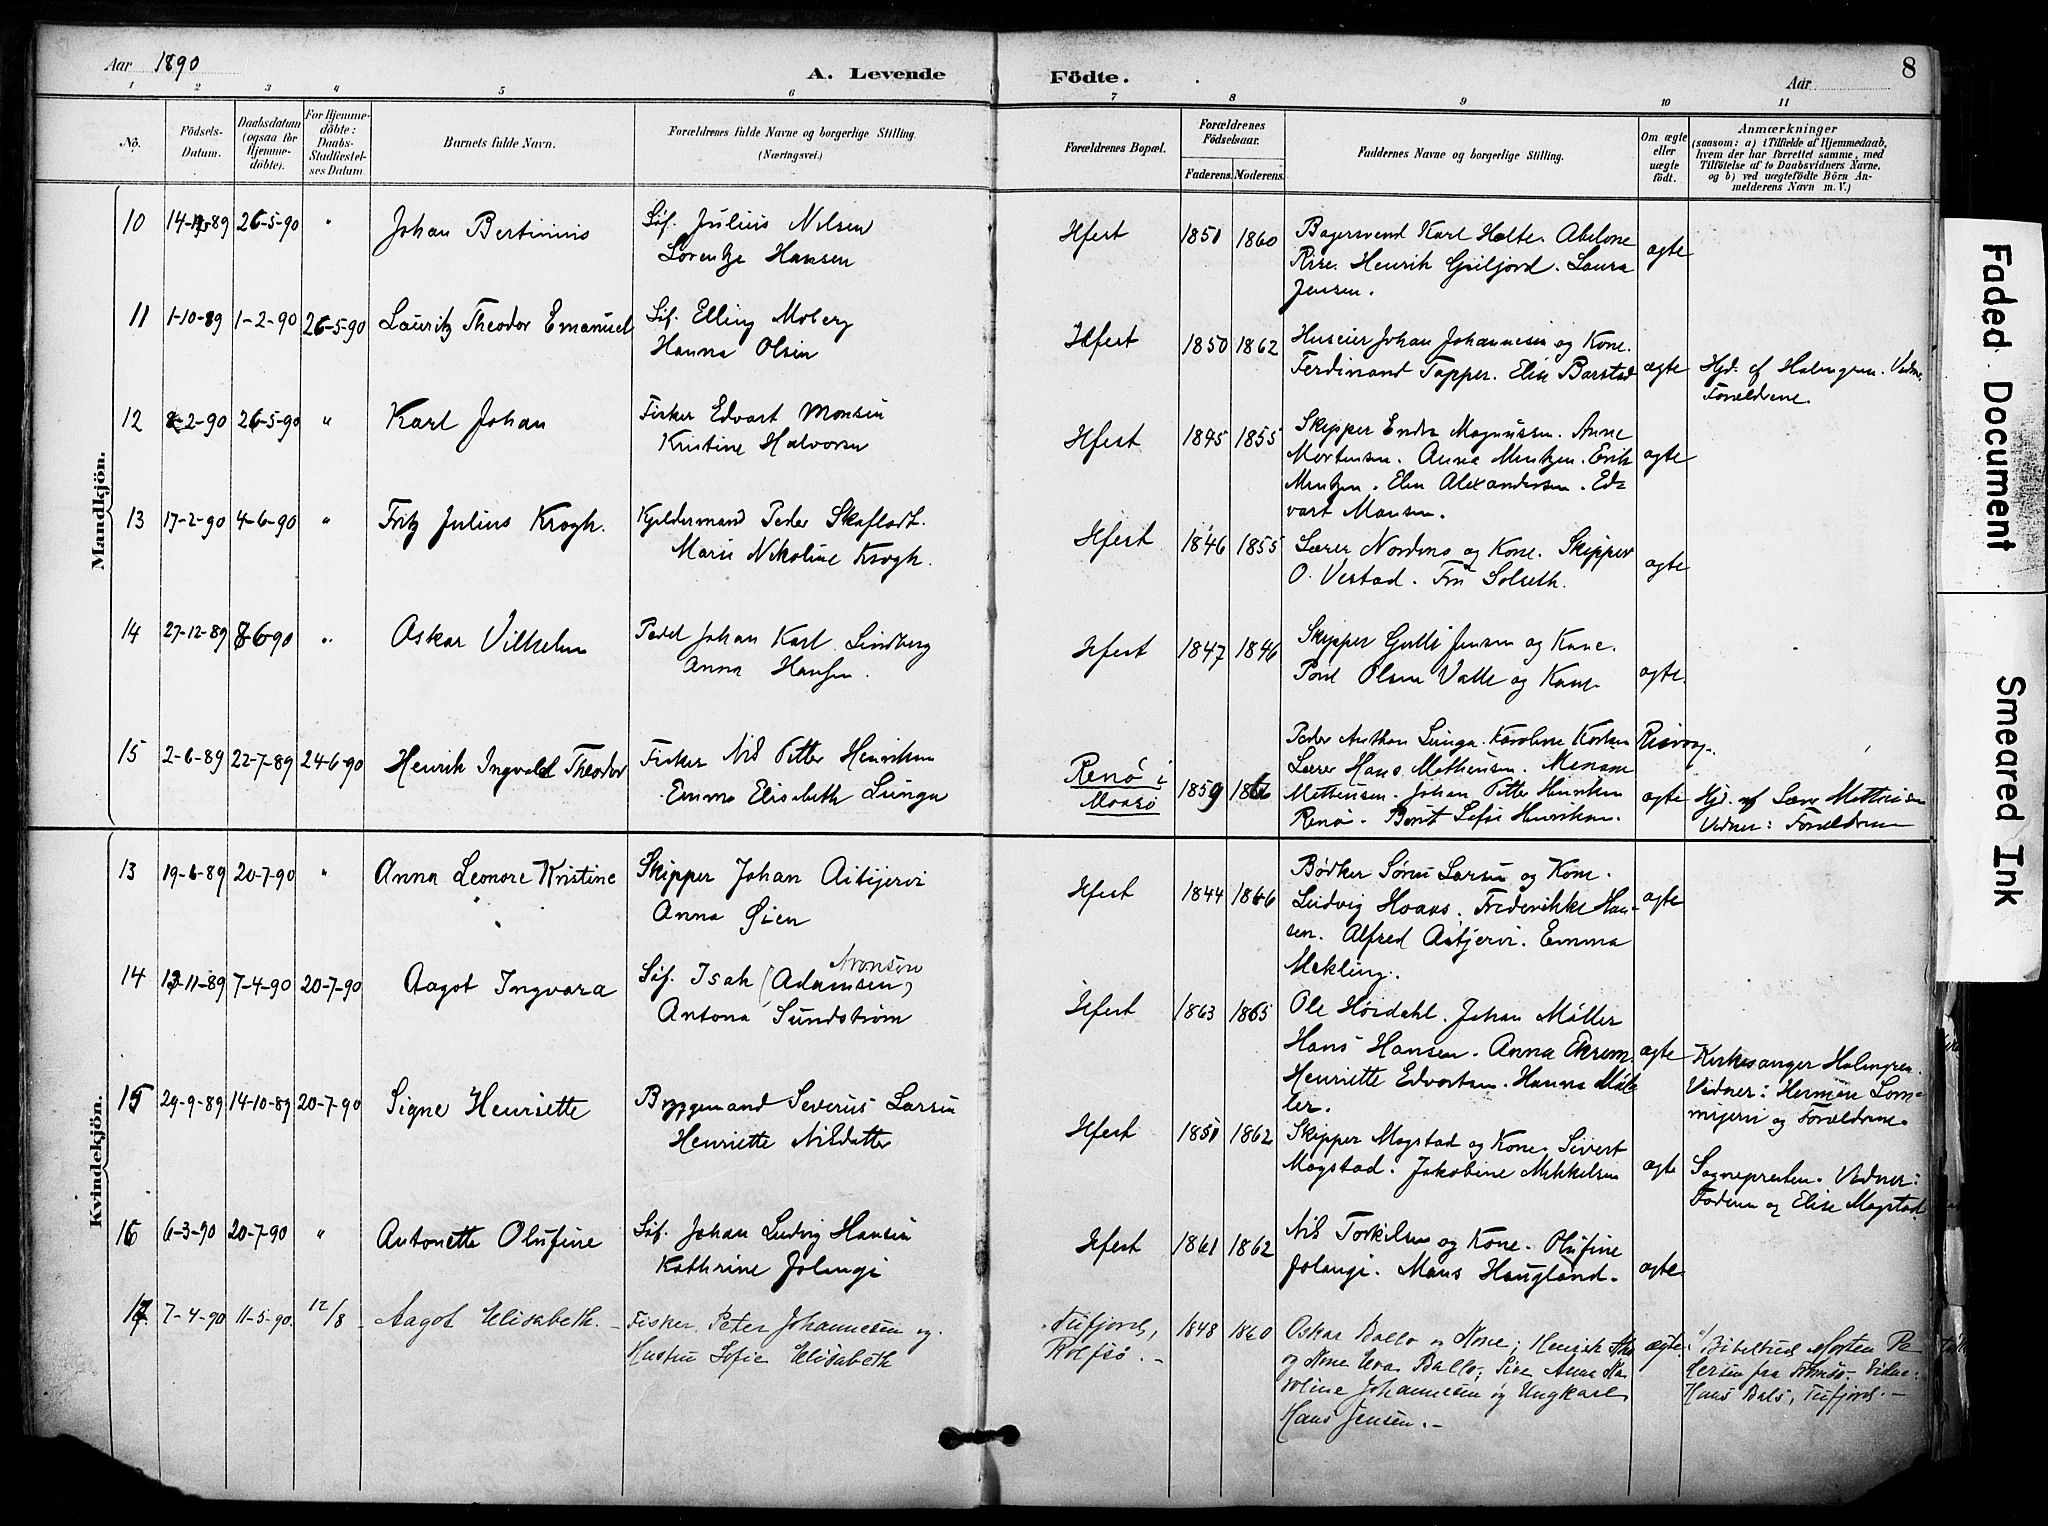 Aar 1890
A. Levende Födte.
Aar
8
1 2 3 4 5 6 7 8 9 10 11
No.
Födsels-
Datum.
Daabsdatum
(ogsaa for
Hjemme-
döbte).
For Hjemme-
döbte:
Daabs-
Stadfæstel-
ses Datum
Barnets fulde Navn.
Forældrenes fulde Navne og borgerlige Stilling.
(Næringsvei.)
Forældrenes Bopæl.
Forældrenes
Födselsaar.
Faderens. Moderens.
Faddernes Navne og borgerlige Stilling.
Om ægte
eller
uægte
födt.
Anmærkninger
(saasom: a) i Tilfælde af Hjemmedaab,
hvem der har forrettet samme, med
Tilföielse af to Daabsvidners Navne.
og b) ved uægtefödte Börn An-
melderens Navn m. V.)
Mandkjön.
10 26-5-90 " Johan Bertinius
Søf. Julius Nilsen
Lorentze Hansen
Hfest 1851 1860
Bagersvend Karl Holte. Abelone
Riise. Henrik Laura
Jensen.
ægte
11 1-10-89 1-2-90 26-5-90 Lauritz Theodor Emanuel
Søf. Elling Moberg
Hanna Olsen
Hfest 1850 1862
Huseier Johan Johannesen og Kone.
Ferdinand Tapper. Elise Barstad
ægte
Hjd. af Holmgren. Vidne.
Forældrene.
12 2-90 26-5-90 " Karl Johan
Fisker Edvart Monsen
Kristine Halvorsen
Hfest 1845 1855
Skipper Endre Magnussen. Anne
Mortensen. Anna Mentzen. Erik
Mentzen. Elen Alexandersen. Ed-
vart Monsen.
ægte
13 17-2-90 4-6-90 " Fritz Julius Krogh.
Kjeldermand Peder Skaflodt.
Marie Nikoline Krogh.
Hfest 1846 1855
Lærer Nordmo og Kone. Skipper
O. Vestad. Fru Solseth.
ægte
14 27-12-89 8-6-90 " Oskar Vilhelm
Johan Karl Lindberg
Anna Hansen.
Hfest 1847 1846
Skipper Jensen og Kone.
Olsen Valle og Kone
ægte.
15 2-6-89 22-7-89 24-6-90 Henrik Ingvald Theodor
Fisker Nils Petter Henriksen
Emma Elisabeth Lunga
Renø i
Maasø
1859
Peder Anthon Lunga. Karoline
Lærer Hans Mathiesen.
Mathiesen. Johan Petter Henriksen
Renø. Berit Sofie Henriksen.
Risvaag.
ægte
Hjd. af Lærer Mathiesen
Vidner: Forældrene
Kvindekjön.
13 19-6-89 20-7-90 " Anna Leonore Kristine
Skipper Johan Aitijervi
Anna Øien
Hfest 1844 1866
Bødker Søren Larsen og Kone.
Ludvig Hoaas. Frederikke Han-
sen. Alfred Aitjervi. Emma
Mekling.
ægte
14 13-11-89 7-4-90 20-7-90 Aagot Ingvara
Aronsen
Søf. Isak (Adamsen)
Antona Sundstrøm
Hfest 1863 1865
Ole Høidahl. Johan Møller
Hans Hansen. Anna Ekrem.
Henriette Edvartsen. Hanna Møl-
ler.
ægte
Kirkesanger Holmgren.
Vidner: Hermine Lom-
mijervi og Forældrene.
15 29-9-89 14-10-89 20-7-90 Signe Henriette
Byggemand Severus Larsen
Henriette Nilsdatter
Hfest 1851 1862
Skipper Mogstad og Kone. Sivert
Mogstad. Jakobine Mikkelsen
ægte
Sognepresten. Vidner:
Faderen og Elise Mogstad.
16 6-3-90 20-7-90 " Antonette Olufine
Søf. Johan Ludvig Hansen
Kathrine Jolangi
Hfest 1861 1862
Nils Torkilsen og Kone. Olufine
Jolangi. Mons Haugland.
ægte
17 7-4-90 11-5-90. 12/8 Aagot Elisabeth.
Fisker Peter Johannesen og
Hustru Sofie Elisabeth
Tufjord,
Rolfsø.
1848 1860
Oskar Ballo og Kone; Henrik
og Kone Eva Ballo; Anne Ka-
roline Johannesen og Ungkarl
Hans Jensen.
ægte
Bibelbud Morten Pe-
dersen fra Tromsø. Vidne:
Hans Bals, Tufjord.
Faded Document
Smeared Ink